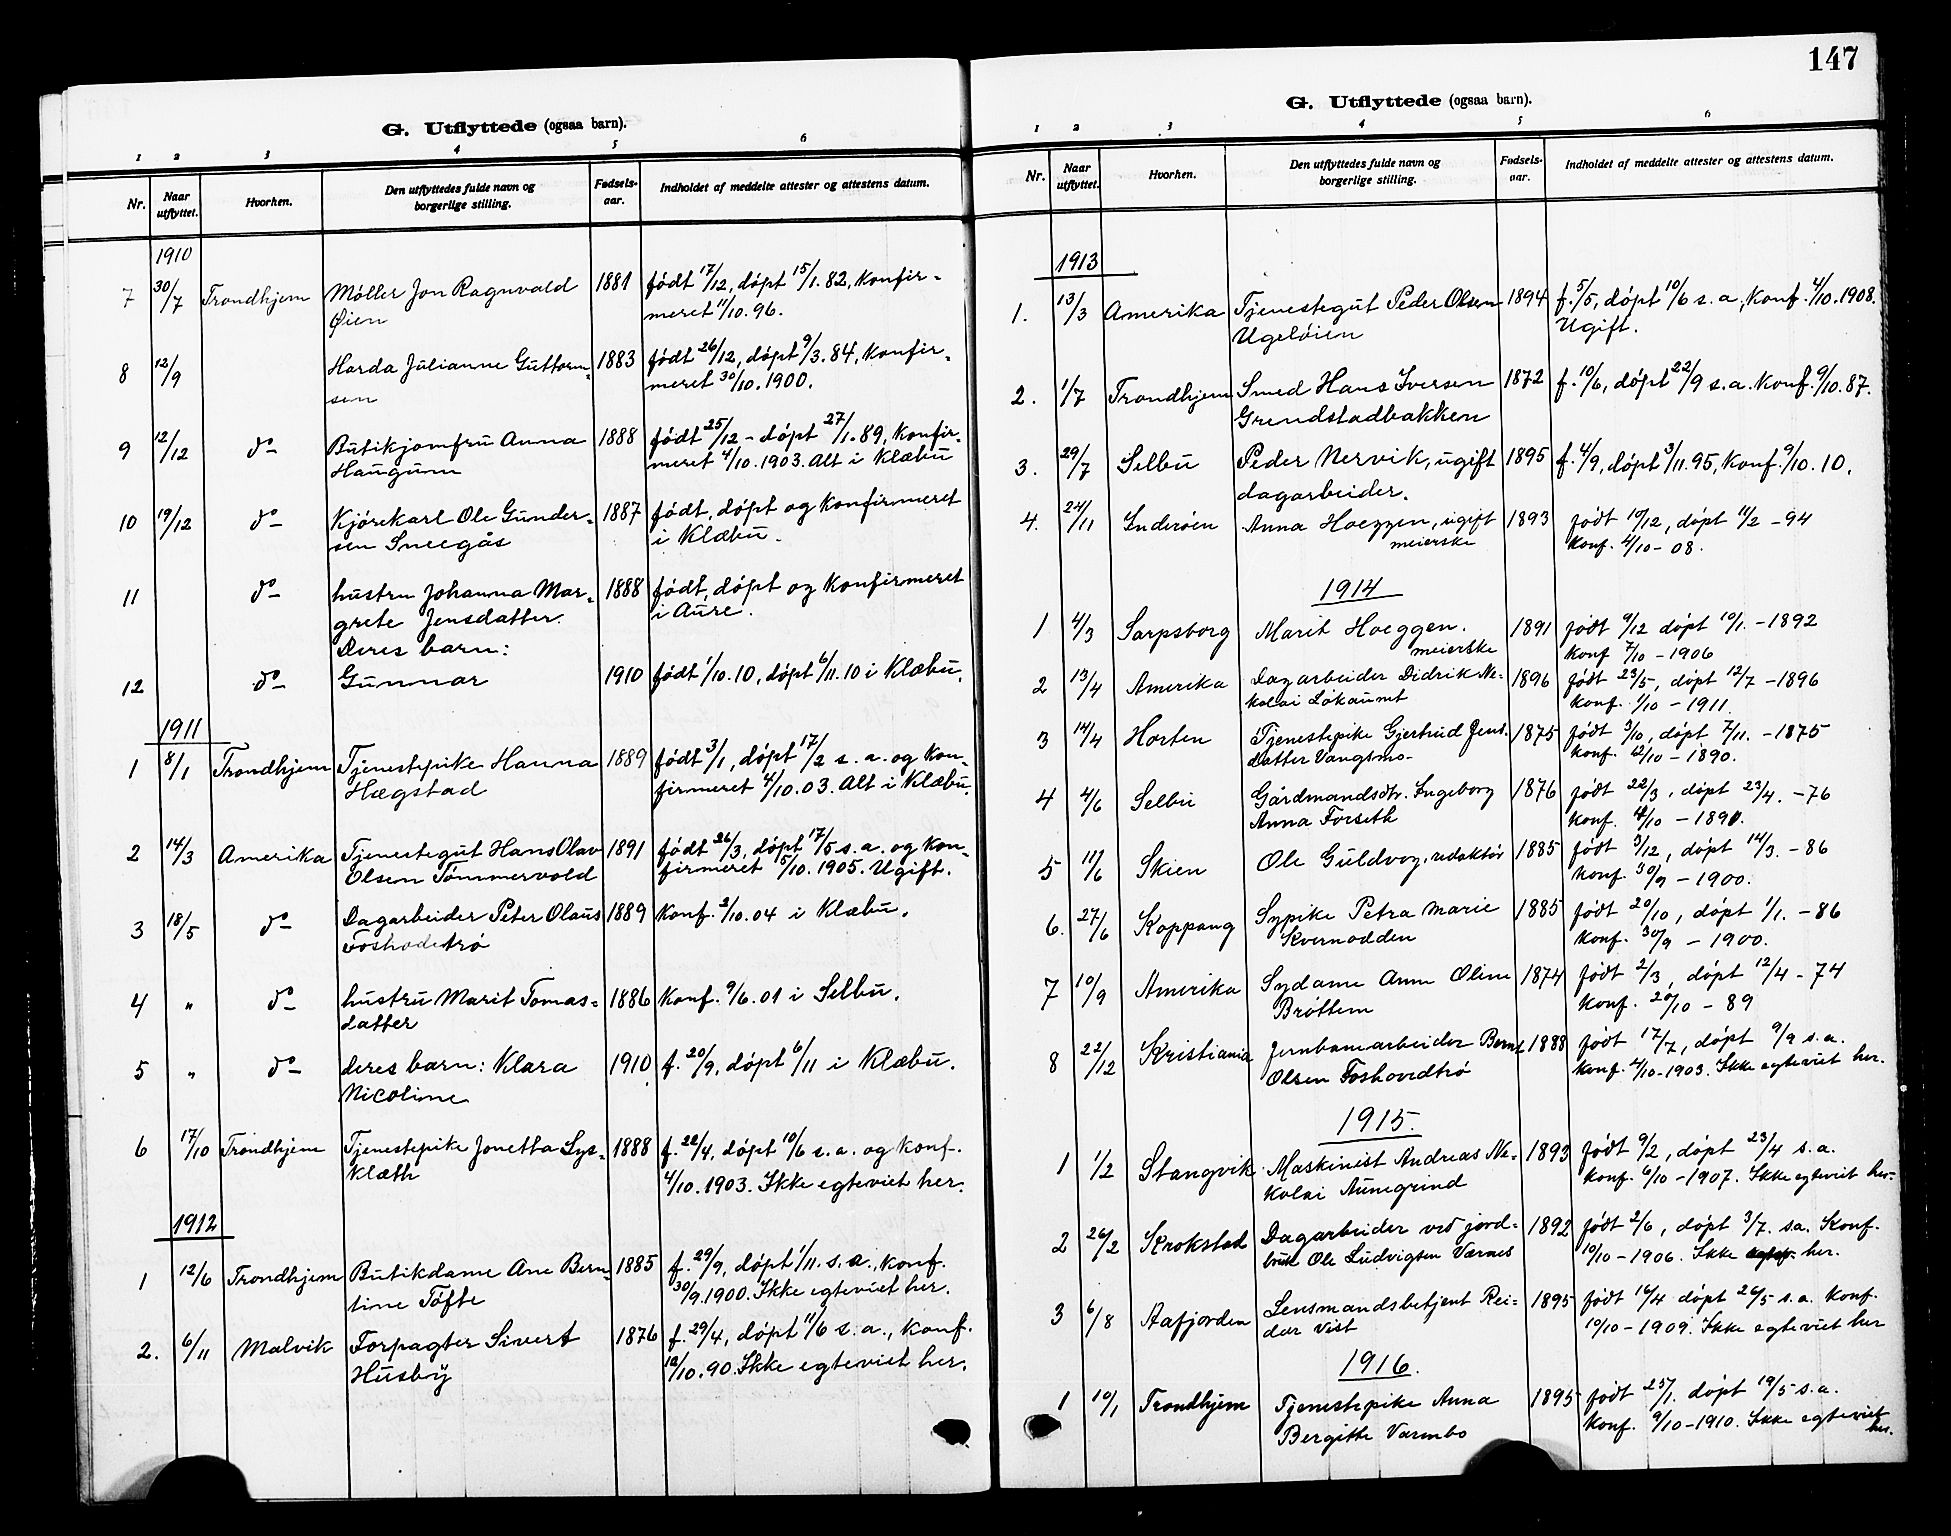 147
G. Utflyttede (ogsaa barn).
1 2 3 4 5 6
Nr. Naar utflyttet. Hvorhen. Den utflyttedes fulde navn og borgerlige stilling. Fødsels-aar. Indholdet af meddelte attester og attestens datum.
1910
7 30/7 Trondhjem Møller Jon Ragnvald 1881 født 17/12, døpt 15/1. 82, Konfir-
Øien meret 11/10. 96.
8 12/9 Harda Julianne Guttorm- 1883 født 26/12, døpt 9/3. 84, Konfir-
sen meret 30/10. 1900.
9 12/12 do Butikjomfru Anna 1888 født 25/12 - døpt 27/1. 89, Konfir-
Haugum meret 4/10. 1903. Alt i Klæbu
10 19/12 do Kjørekarl Ole Gunder- 1887 født, døpt og Konfirmeret
sen Sneegås i Klæbu.
11 do hustru Johanna Mar- 1888 født, døpt og Konfirmeret
grete Jensdatter. i Aure.
Deres barn:
12 do Gunnar 1910 født 1/10. 10, døpt 6/11. 10 i Klæbu.
1911
1 8/1 Trondhjem Tjenestepike Hanna 1889 født 3/1, døpt 17/2 s. a. og Kon-
Hægstad firmeret 4/10. 03. Alt i Klæbu.
2 14/3 Amerika Tjenestegut Hans Olav 1891 født 26/3, døpt 17/5 s. a. og Kon-
Olsen Tømmervold firmeret 15/10. 1905. Ugift.
3 18/5 do Dagarbeider Peter Olaus 1889 Konf. 2/10. 04 i Klæbu.
Foshodetrø
4 " do hustru Marit Tomas- 1886 Konf. 9/6. 01 i Selbu.
datter
5 " do deres barn: Klara 1910 f. 20/9, døpt 6/11 i Klæbu.
Nicoline
6 17/10 Trondhjem Tjenestepike Jonetta Lys- 1888 f. 22/4, døpt 10/6 s. a. og Konf.
Klæth 4/10. 1903. Ikke egteviet her.
1912
1 12/6 Trondhjem Butikdame Ane Bern- 1885 f. 29/9, døpt 1/11. s. a., Konf.
tine Tøfte 30/9. 1900. Ikke egteviet her.
2. 6/11 Malvik Forpagter Sivert 1876 f. 29/4, døpt 11/6 s. a., Konf.
Husby 12/10. 90. Ikke egteviet her.
G. Utflyttede (ogsaa barn).
1 2 3 4 5 6
Nr. Naar utflyttet. Hvorhen. Den utflyttedes fulde navn og borgerlige stilling. Fødsels-aar. Indholdet af meddelte attester og attestens datum.
1913
1. 13/3 Amerika Tjenestegut Peder Olsen 1894 f. 5/5, døpt 10/6 s. a., Konf. 4/10. 1908.
Ugeløien Ugift.
2. 1/7 Trondhjem Smed Hans Iversen 1872 f. 10/6, døpt 22/9 s. a. Konf. 9/10. 87.
Grendstadbakken
3. 29/7 Selbu Peder Nervik, ugift 1895 f. 4/9, døpt 3/11. 95, Konf. 9/10. 10.
dagarbeider.
4. 24/11 Inderøen Anna Hoeggen, ugift 1893 født 10/12, døpt 11/2 - 94
meierske Konf. 4/10 - 08.
1914
1 4/3 Sarpsborg Marit Hoeggen. 1891 født 9/12 døpt 10/1. - 1892
meierske Konf 7/10 - 1906
2 13/4 Amerika Dagarbeider Didrik Ne- 1896 født 23/5, døpt 12/7 - 1896
kolai Løkaunet Konf. 1/10 - 1911.
3 14/4 Horten Tjenestepike Gjertrud Jens- 1875 født 3/10, døpt 7/11. - 1875
datter Vangsmo- Konf. 12/10 - 1890.
4 4/6 Selbu Gårdmandsdtr. Ingeborg 1876 født 22/3, døpt 23/4. - 76
Anna Forseth Konf. /10 - 1891.
5 11/6 Skien Ole Guldvog, redaktør 1885 født 3/12, døpt 14/3. - 86
Konf. 30/9 - 1900.
6. 27/6 Koppang Sypike Petra Marie 1885 født 20/10, døpt 1/1. - 86
Kvernodden Konf. 30/9 - 1900.
7 10/9 Amerika Sydame Ann Oline 1874 født 2/3, døpt 12/4 - 74
Brøttem Konf. 20/10 - 89
8 22/12 Kristiania Jernbanearbeider Bernt 1888 født 17/7, døpt 9/9 s. a.
Olsen Foshovdtrø Konf. 4/10 - 1903. Ikke egteviet her.
1915.
1 1/2 Stangvik Maskinist Andreas Ne- 1893 født 9/2, døpt 23/4 s. a.
kolai Aunegrind Konf. 6/10 - 1907. Ikke egteviet her.
2 26/2 Krokstad Dagarbeider ved jord- 1892 født 2/6, døpt 3/7. s.a. Konf.
bruk Ole Ludvigsen Værnes 10/10 - 1906. Ikke her.
3 6/8 Aafjorden Lensmandsbetjent Rei- 1895 født 16/4 døpt 26/5 s. a. Konf.
dar Vist 10/10 - 1909. Ikke egteviet her
1916.
1 10/1 Trondhjem Tjenestepike Anna 1895 født 25/1. døpt 19/5 s. a.
Bergitte Varmbo Konf. 9/10 - 1910. Ikke egteviet
her.